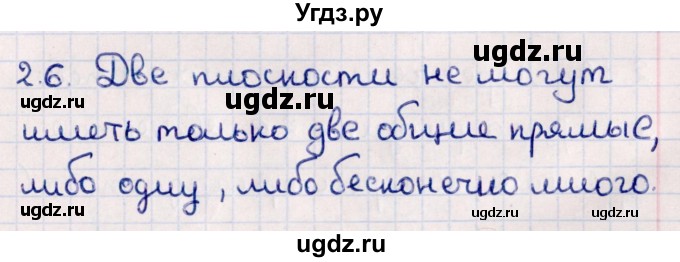 Угдз.ру
2.6. Две плоскости не могут
ugdz.ru ugdz.ru ugdz.ru
иметь только две общие прямые,
либо одну, либо бесконечно много.
ugdz.ru ugdz.ru ugdz.ru
ugdz.ru